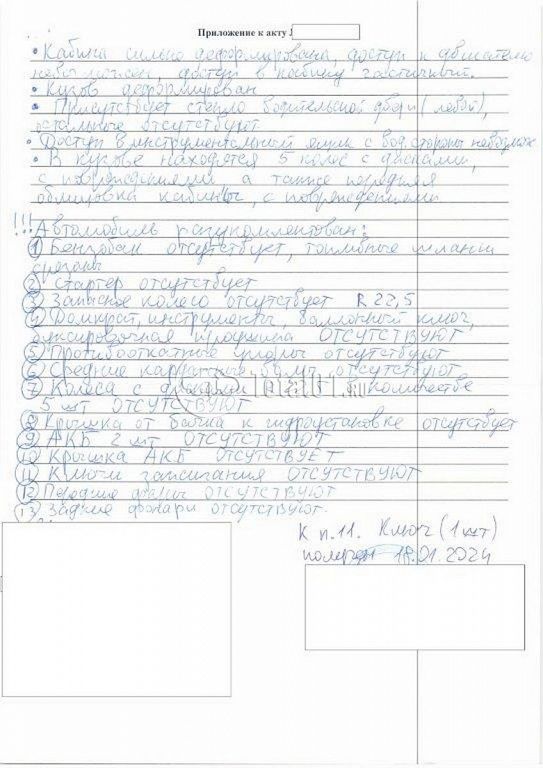 Приложение к акту
• Кабина сильно деформирована, доступ к двигателю
невозможен, доступ в кабину частичный.
• Кузов деформирован
• Присутствует стекло водительской двери (левой),
остальные отсутствуют
• Доступ в инструментальный ящик с вод. стороны невозмож
• В кузове находятся 5 колес с дисками,
с повреждениями, а также передняя
облицовка кабины, с повреждениями
!!! Автомобиль разукомплектован:
1) Бензобак отсутствует, топливные шланги
срезаны
2) Стартер отсутствует
3) Запасное колесо отсутствует R 22,5
4) Домкрат, инструменты, баллонный ключ,
буксировочная проушина ОТСУТСТВУЮТ
5) Противооткатные упоры отсутствуют
6) Средние карданные валы отсутствуют
7) Колеса с дисками количестве
5 шт ОТСУТСТВУЮТ
8) Крышка от бачка к гидроустановке отсутствует
9) АКБ 2 шт ОТСУТСТВУЮТ
10) Крышка АКБ ОТСУТСТВУЕТ
11) Ключи зажигания ОТСУТСТВУЮТ
12) Передние фары ОТСУТСТВУЮТ
13) Задние фонари отсутствуют.
К п.11. Ключ (1 шт)
18.01.2024